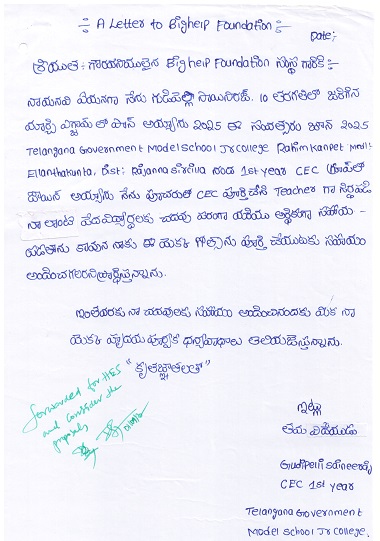 ÷ A Letter to Bighelp Foundation ÷
Date:-
శ్రీయుత : గౌరవనీయులైన Bighelp Foundation సంస్థ గారికి
నాయనవి ఏమనగా నేను గుడిపెల్లి సాయినిరజ్. 10 తరగతిలో జరిగిన
ఎగ్జామ్ లో పాస్ అయ్యాను 2025 ఈ సంవత్సరం జూన్ 2025
Telangana Government Model School Jr College Rahimkanpet Mndl:-
Ellanthakunta, Dist: Rajanna sircilla నందు 1st year CEC గ్రూప్‌లో
జాయిన్ అయ్యాను నేను CEC పూర్తి చేసి Teacher గా స్థిరపడి
నా లాంటి పేద విద్యార్థులకు చదువు పరంగా మరియు ఆర్థికంగా సహాయ -
పడతాను కావున నాకు ఈ యొక్క పూర్తి చేయుటకు సహాయం
అందించగలరని ప్రార్థిస్తున్నాను.
ఇంతవరకు నా చదువులకు సహాయం అందించినందుకు మీకు నా
యొక్క హృదయ పూర్వక ధన్యవాదాలు తెలియజేస్తున్నాను.
"కృతజ్ఞతలతో"
forwarded for HES
and consider the
proposals
ఇట్లు
తమ విధేయుడు
Gudipelli saineeraj
CEC 1st year
Telangana Government
Model School Jr College.